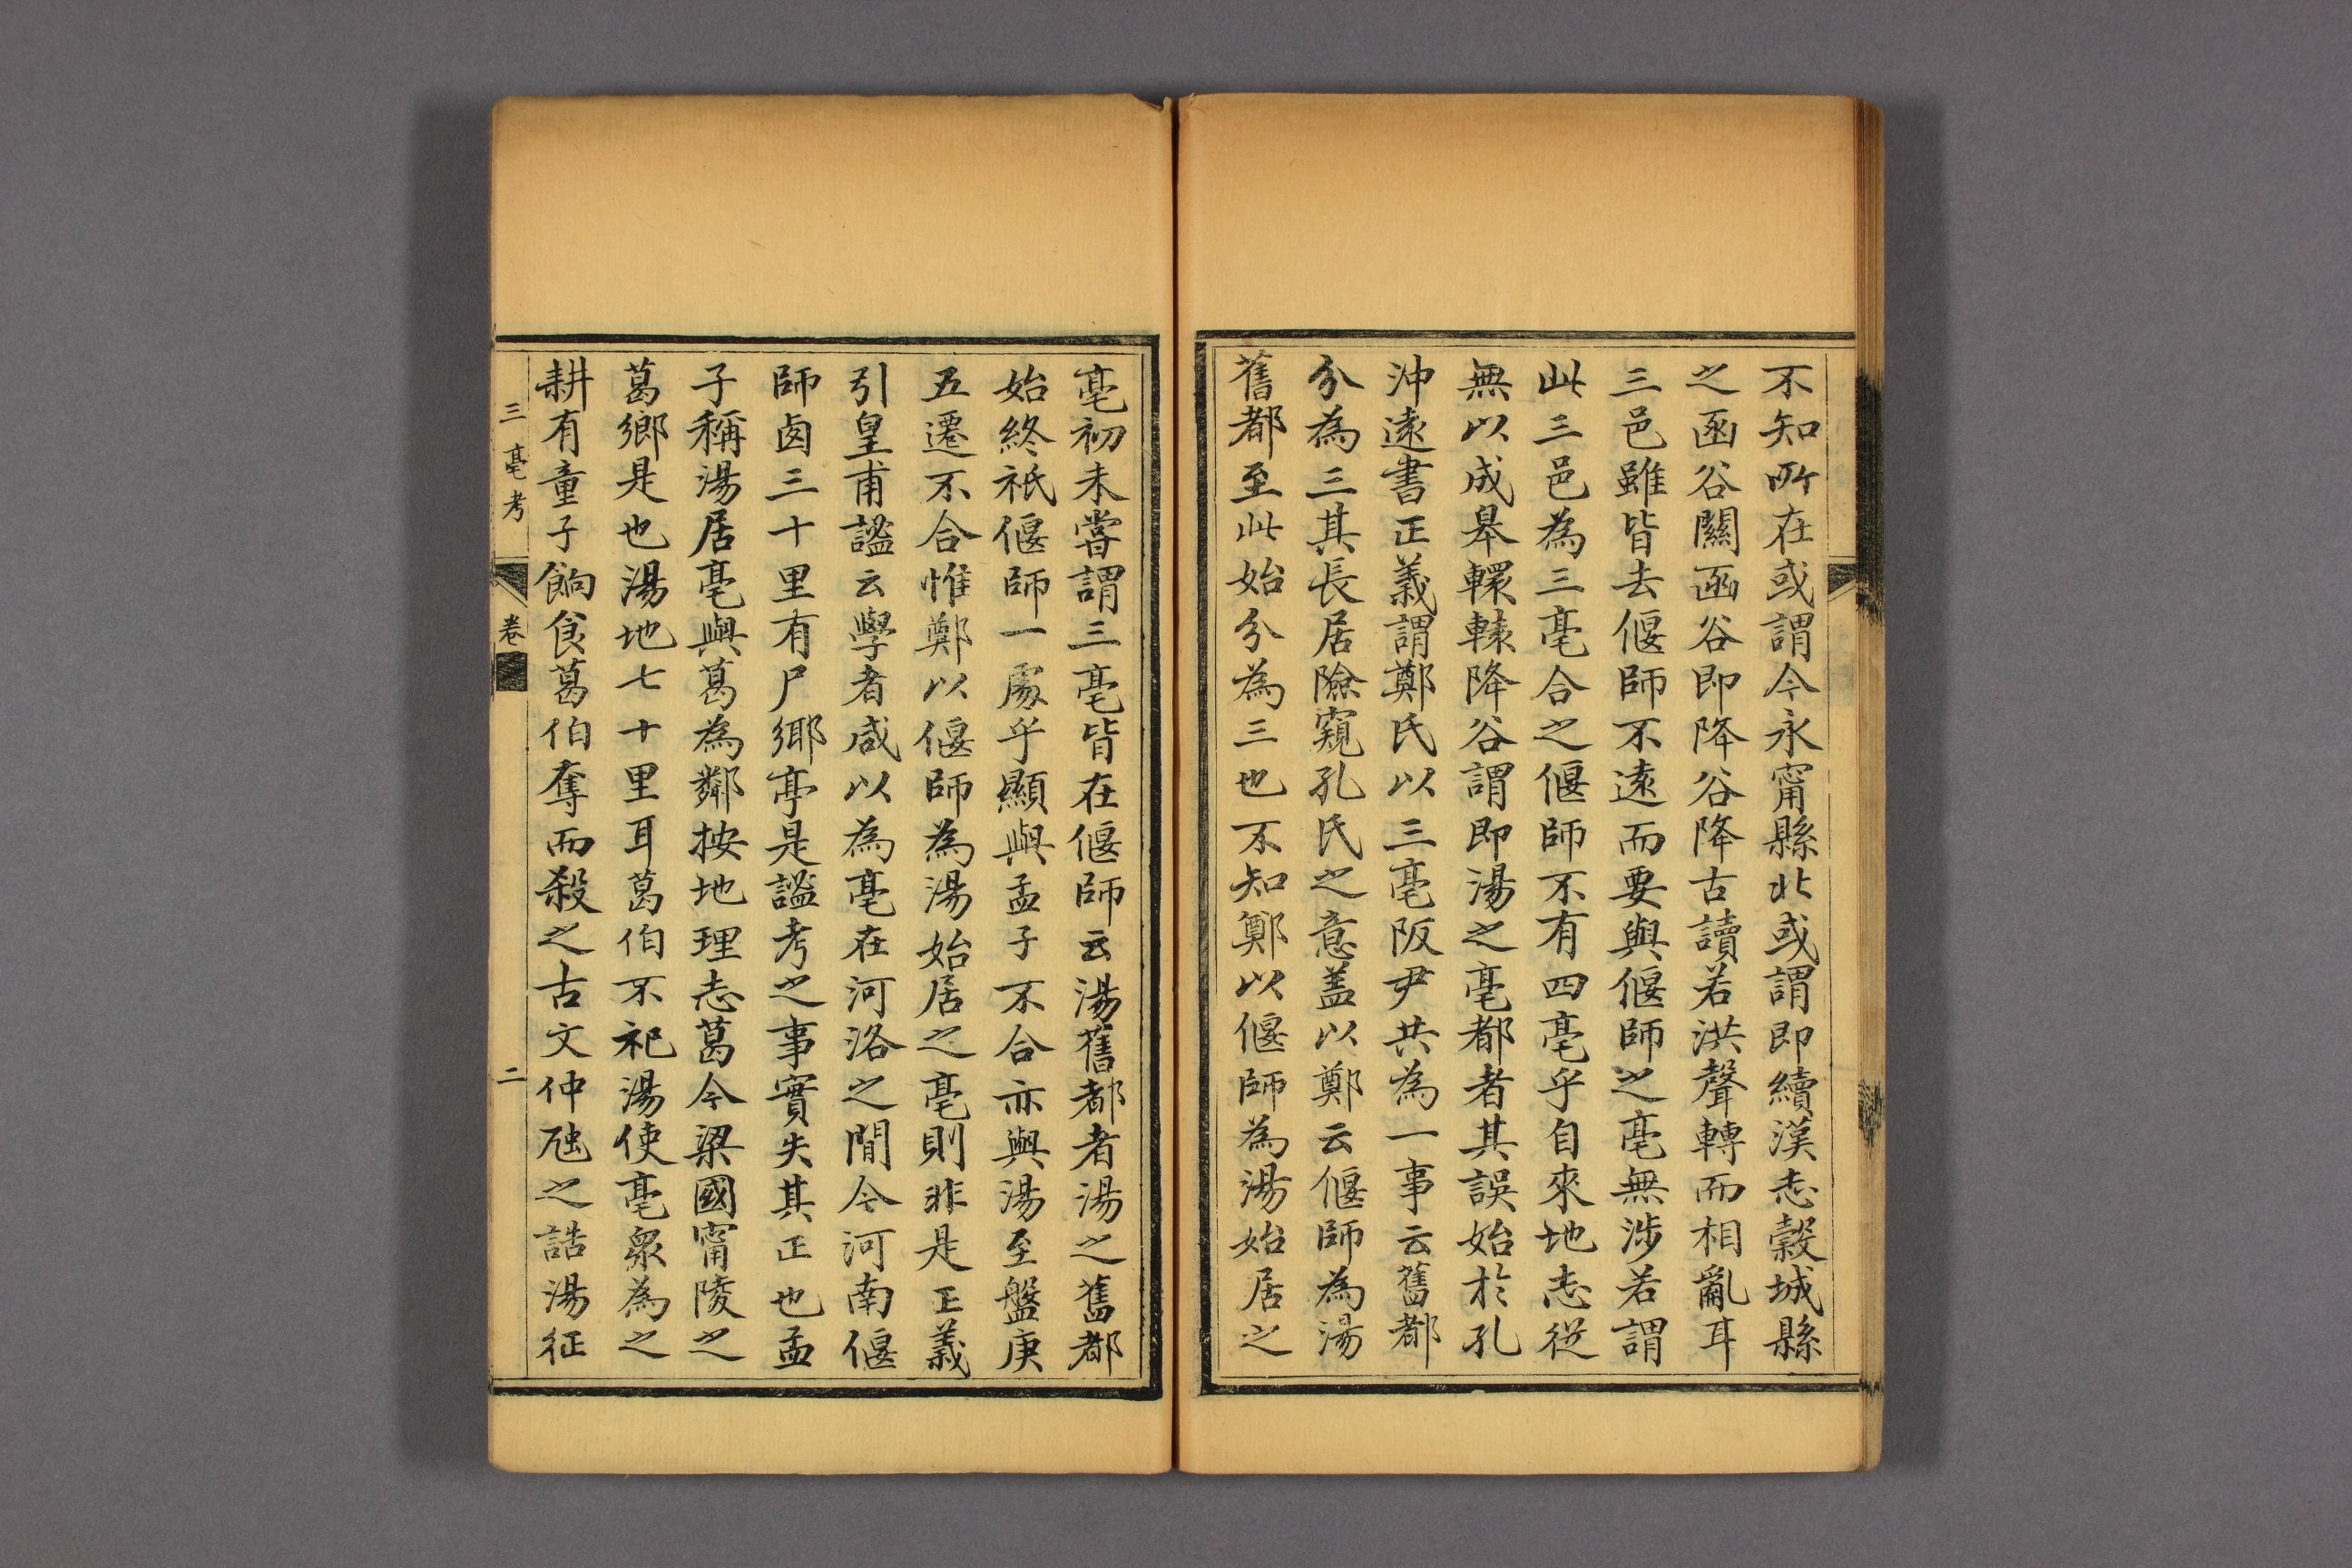 不知所在或謂今永甯縣北或謂即續漢志縠城縣
之函谷關函谷即降谷降古讀若洪聲轉而相亂耳
三邑雖皆去偃師不遠而要與偃師之亳無涉若謂
此三邑為三亳合之偃師不有四亳乎自來地志從
無以成皋轘轅降谷謂即湯之亳都者其誤始於孔
沖遠書正義謂鄭氏以三亳阪尹共為一事云舊都
分為三其長居險窺孔氏之意葢以鄭云偃師為湯
舊都至此始分為三也不知鄭以偃師為湯始居之
亳初未嘗謂三亳皆在偃師云湯舊都者湯之舊都
始終祇偃師一處乎顯與孟子不合亦與湯至盤庚
五遷不合惟鄭以偃師為湯始居之亳則非是正義
引皇甫謐云學者咸以為亳在河洛之間今河南偃
師𠧧三十里有尸鄉亭是謐考之事實失其正也孟
子稱湯居亳與葛為鄰按地理志葛今梁國甯陵之
葛鄉是也湯地七十里耳葛伯不祀湯使亳衆為之
耕有童子餉食葛伯奪而殺之古文仲虺之誥湯征
三亳考
卷
二